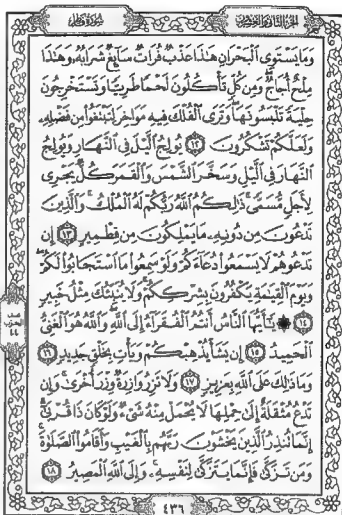 سورة فاطر
الجزء الثاني والعشرون
وَمَا يَسْتَوِى ٱلْبَحْرَانِ هَٰذَا عَذْبٌ فُرَاتٌ سَآئِغٌ شَرَابُهُۥ وَهَٰذَا
مِلْحٌ أُجَاجٌ وَمِن كُلٍّ تَأْكُلُونَ لَحْمًا طَرِيًّا وَتَسْتَخْرِجُونَ
حِلْيَةً تَلْبَسُونَهَا وَتَرَى ٱلْفُلْكَ فِيهِ مَوَاخِرَ لِتَبْتَغُوا۟ مِن فَضْلِهِۦ
وَلَعَلَّكُمْ تَشْكُرُونَ ١٢ يُولِجُ ٱلَّيْلَ فِى ٱلنَّهَارِ وَيُولِجُ
ٱلنَّهَارَ فِى ٱلَّيْلِ وَسَخَّرَ ٱلشَّمْسَ وَٱلْقَمَرَ كُلٌّ يَجْرِى
لِأَجَلٍ مُّسَمًّى ذَٰلِكُمُ ٱللَّهُ رَبُّكُمْ لَهُ ٱلْمُلْكُ وَٱلَّذِينَ
تَدْعُونَ مِن دُونِهِۦ مَا يَمْلِكُونَ مِن قِطْمِيرٍ ١٣ إِن
تَدْعُوهُمْ لَا يَسْمَعُوا۟ دُعَآءَكُمْ وَلَوْ سَمِعُوا۟ مَا ٱسْتَجَابُوا۟ لَكُمْ
وَيَوْمَ ٱلْقِيَٰمَةِ يَكْفُرُونَ بِشِرْكِكُمْ وَلَا يُنَبِّئُكَ مِثْلُ خَبِيرٍ
١٤ ۞ يَٰٓأَيُّهَا ٱلنَّاسُ أَنتُمُ ٱلْفُقَرَآءُ إِلَى ٱللَّهِ وَٱللَّهُ هُوَ ٱلْغَنِىُّ
ٱلْحَمِيدُ ١٥ إِن يَشَأْ يُذْهِبْكُمْ وَيَأْتِ بِخَلْقٍ جَدِيدٍ ١٦
وَمَا ذَٰلِكَ عَلَى ٱللَّهِ بِعَزِيزٍ ١٧ وَلَا تَزِرُ وَازِرَةٌ وِزْرَ أُخْرَىٰ وَإِن
تَدْعُ مُثْقَلَةٌ إِلَىٰ حِمْلِهَا لَا يُحْمَلْ مِنْهُ شَىْءٌ وَلَوْ كَانَ ذَا قُرْبَىٰٓ
إِنَّمَا تُنذِرُ ٱلَّذِينَ يَخْشَوْنَ رَبَّهُم بِٱلْغَيْبِ وَأَقَامُوا۟ ٱلصَّلَوٰةَ
وَمَن تَزَكَّىٰ فَإِنَّمَا يَتَزَكَّىٰ لِنَفْسِهِۦ وَإِلَى ٱللَّهِ ٱلْمَصِيرُ ١٨
نصف
الحزب
٤٤
٤٣٦